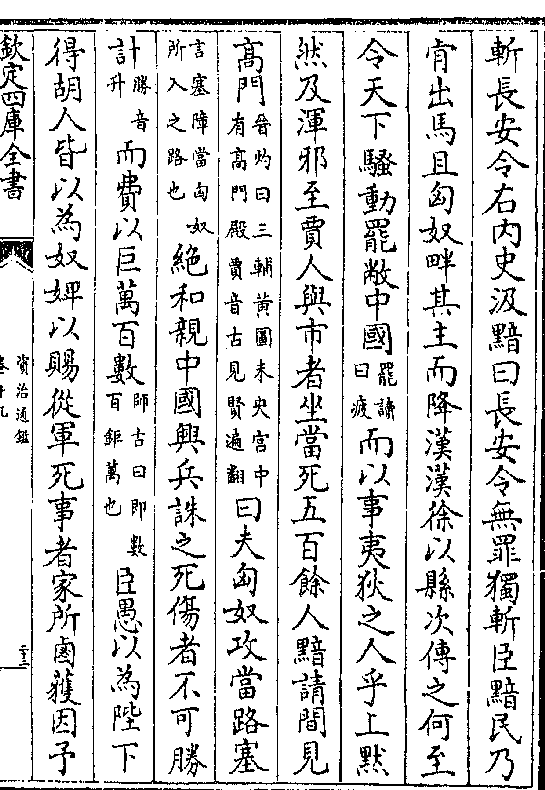 斬長安令右内史汲黯曰長安令無罪獨斬臣黯民乃
肯出馬且匈奴畔其主而降漢漢徐以縣次傳之何至
令天下騷動罷敝中國罷讀曰疲而以事夷狄之人乎上黙
然及渾邪至賈人與市者坐當死五百餘人黯請間見
髙門晉灼曰三輔黄圖未央宫中有髙門殿賈音古見賢遍翻曰夫匈奴攻當路塞
言塞障當匈奴所入之路也絶和親中國興兵誅之死傷者不可勝
計勝音升而費以巨萬百數師古曰即數百鉅萬也臣愚以為陛下
得胡人皆以為奴婢以賜從軍死事者家所鹵獲因予
欽定四庫全書
資治通鑑
卷十九